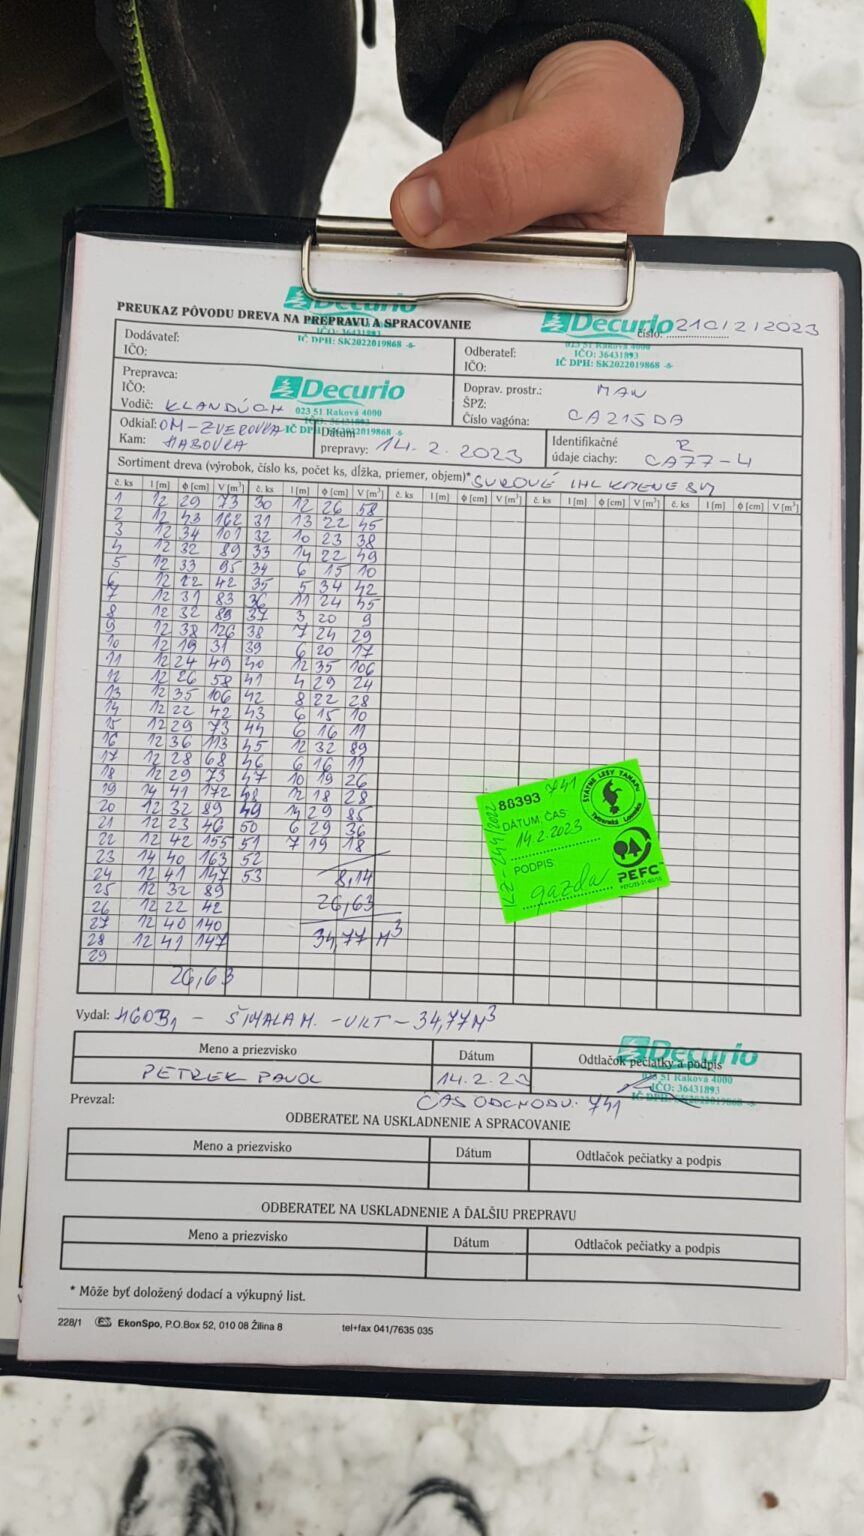 Decurio
PREUKAZ PÔVODU DREVA NA PREPRAVU A SPRACOVANIE
IČO: 36431893
IČ DPH: SK2022019868 -6-
Decurio
číslo: 210/2/2023
023 51 Raková 4000
IČO: 36431893
IČ DPH: SK2022019868 -6-
Dodávateľ:
IČO:
Odberateľ:
IČO:
Prepravca:
IČO:
Vodič: KLANDÚCH
Decurio
023 51 Raková 4000
IČO: 36431893
IČ DPH: SK2022019868 -6-
Doprav. prostr.: MAN
ŠPZ:
Číslo vagóna: CA215DA
Odkiaľ: OM-ZVEROVKA
Kam: HABOVKA
Dátum
prepravy: 14.2.2023
Identifikačné R
údaje ciachy: CA77-4
Sortiment dreva (výrobok, číslo ks, počet ks, dĺžka, priemer, objem)* SUROVÉ IHL KMENE
č. ks l [m] ϕ [cm] V [m³] č. ks l [m] ϕ [cm] V [m³] č. ks l [m] ϕ [cm] V [m³] č. ks l [m] ϕ [cm] V [m³] č. ks l [m] ϕ [cm] V [m³]
1 12 29 73 30 12 26 58
2 12 43 162 31 13 22 45
3 12 34 101 32 10 23 38
4 12 32 89 33 14 22 49
5 12 33 95 34 6 15 10
6 12 22 42 35 5 34 42
7 12 31 83 36 11 24 45
8 12 32 89 37 3 20 9
9 12 38 126 38 7 24 29
10 12 19 31 39 6 20 17
11 12 24 49 40 12 35 106
12 12 26 58 41 4 29 24
13 12 35 106 42 8 22 28
14 12 22 42 43 6 15 10
15 12 29 73 44 6 16 11
16 12 36 113 45 12 32 89
17 12 28 68 46 6 16 11
18 12 29 73 47 10 19 26
19 14 41 172 48 12 18 28
20 12 32 89 49 14 29 85
21 12 23 46 50 6 29 36
22 12 42 155 51 7 19 18
23 14 40 163 52
24 12 41 147 53 8,14
25 12 32 89
26 12 22 42 26,63
27 12 40 140
28 12 41 147 34,77 M³
29
26,63
88393 741
DÁTUM, ČAS:
14.2.2023
PODPIS
gazda
ŠTÁTNE LESY TANAPU
Tatranská Lomnica
PEFC
Vydal: - ŠIMALA M. - - 34,77M³
Meno a priezvisko Dátum Odtlačok pečiatky a podpis
Decurio
PETREK PAVOL 14.2.23
023 51 Raková 4000
IČO: 36431893
Prevzal: ČAS ODCHODU: 741
ODBERATEĽ NA USKLADNENIE A SPRACOVANIE
Meno a priezvisko Dátum Odtlačok pečiatky a podpis
ODBERATEĽ NA USKLADNENIE A ĎALŠIU PREPRAVU
Meno a priezvisko Dátum Odtlačok pečiatky a podpis
* Môže byť doložený dodací a výkupný list.
228/1 EkonSpo, P.O.Box 52, 010 08 Žilina 8 tel+fax 041/7635 035